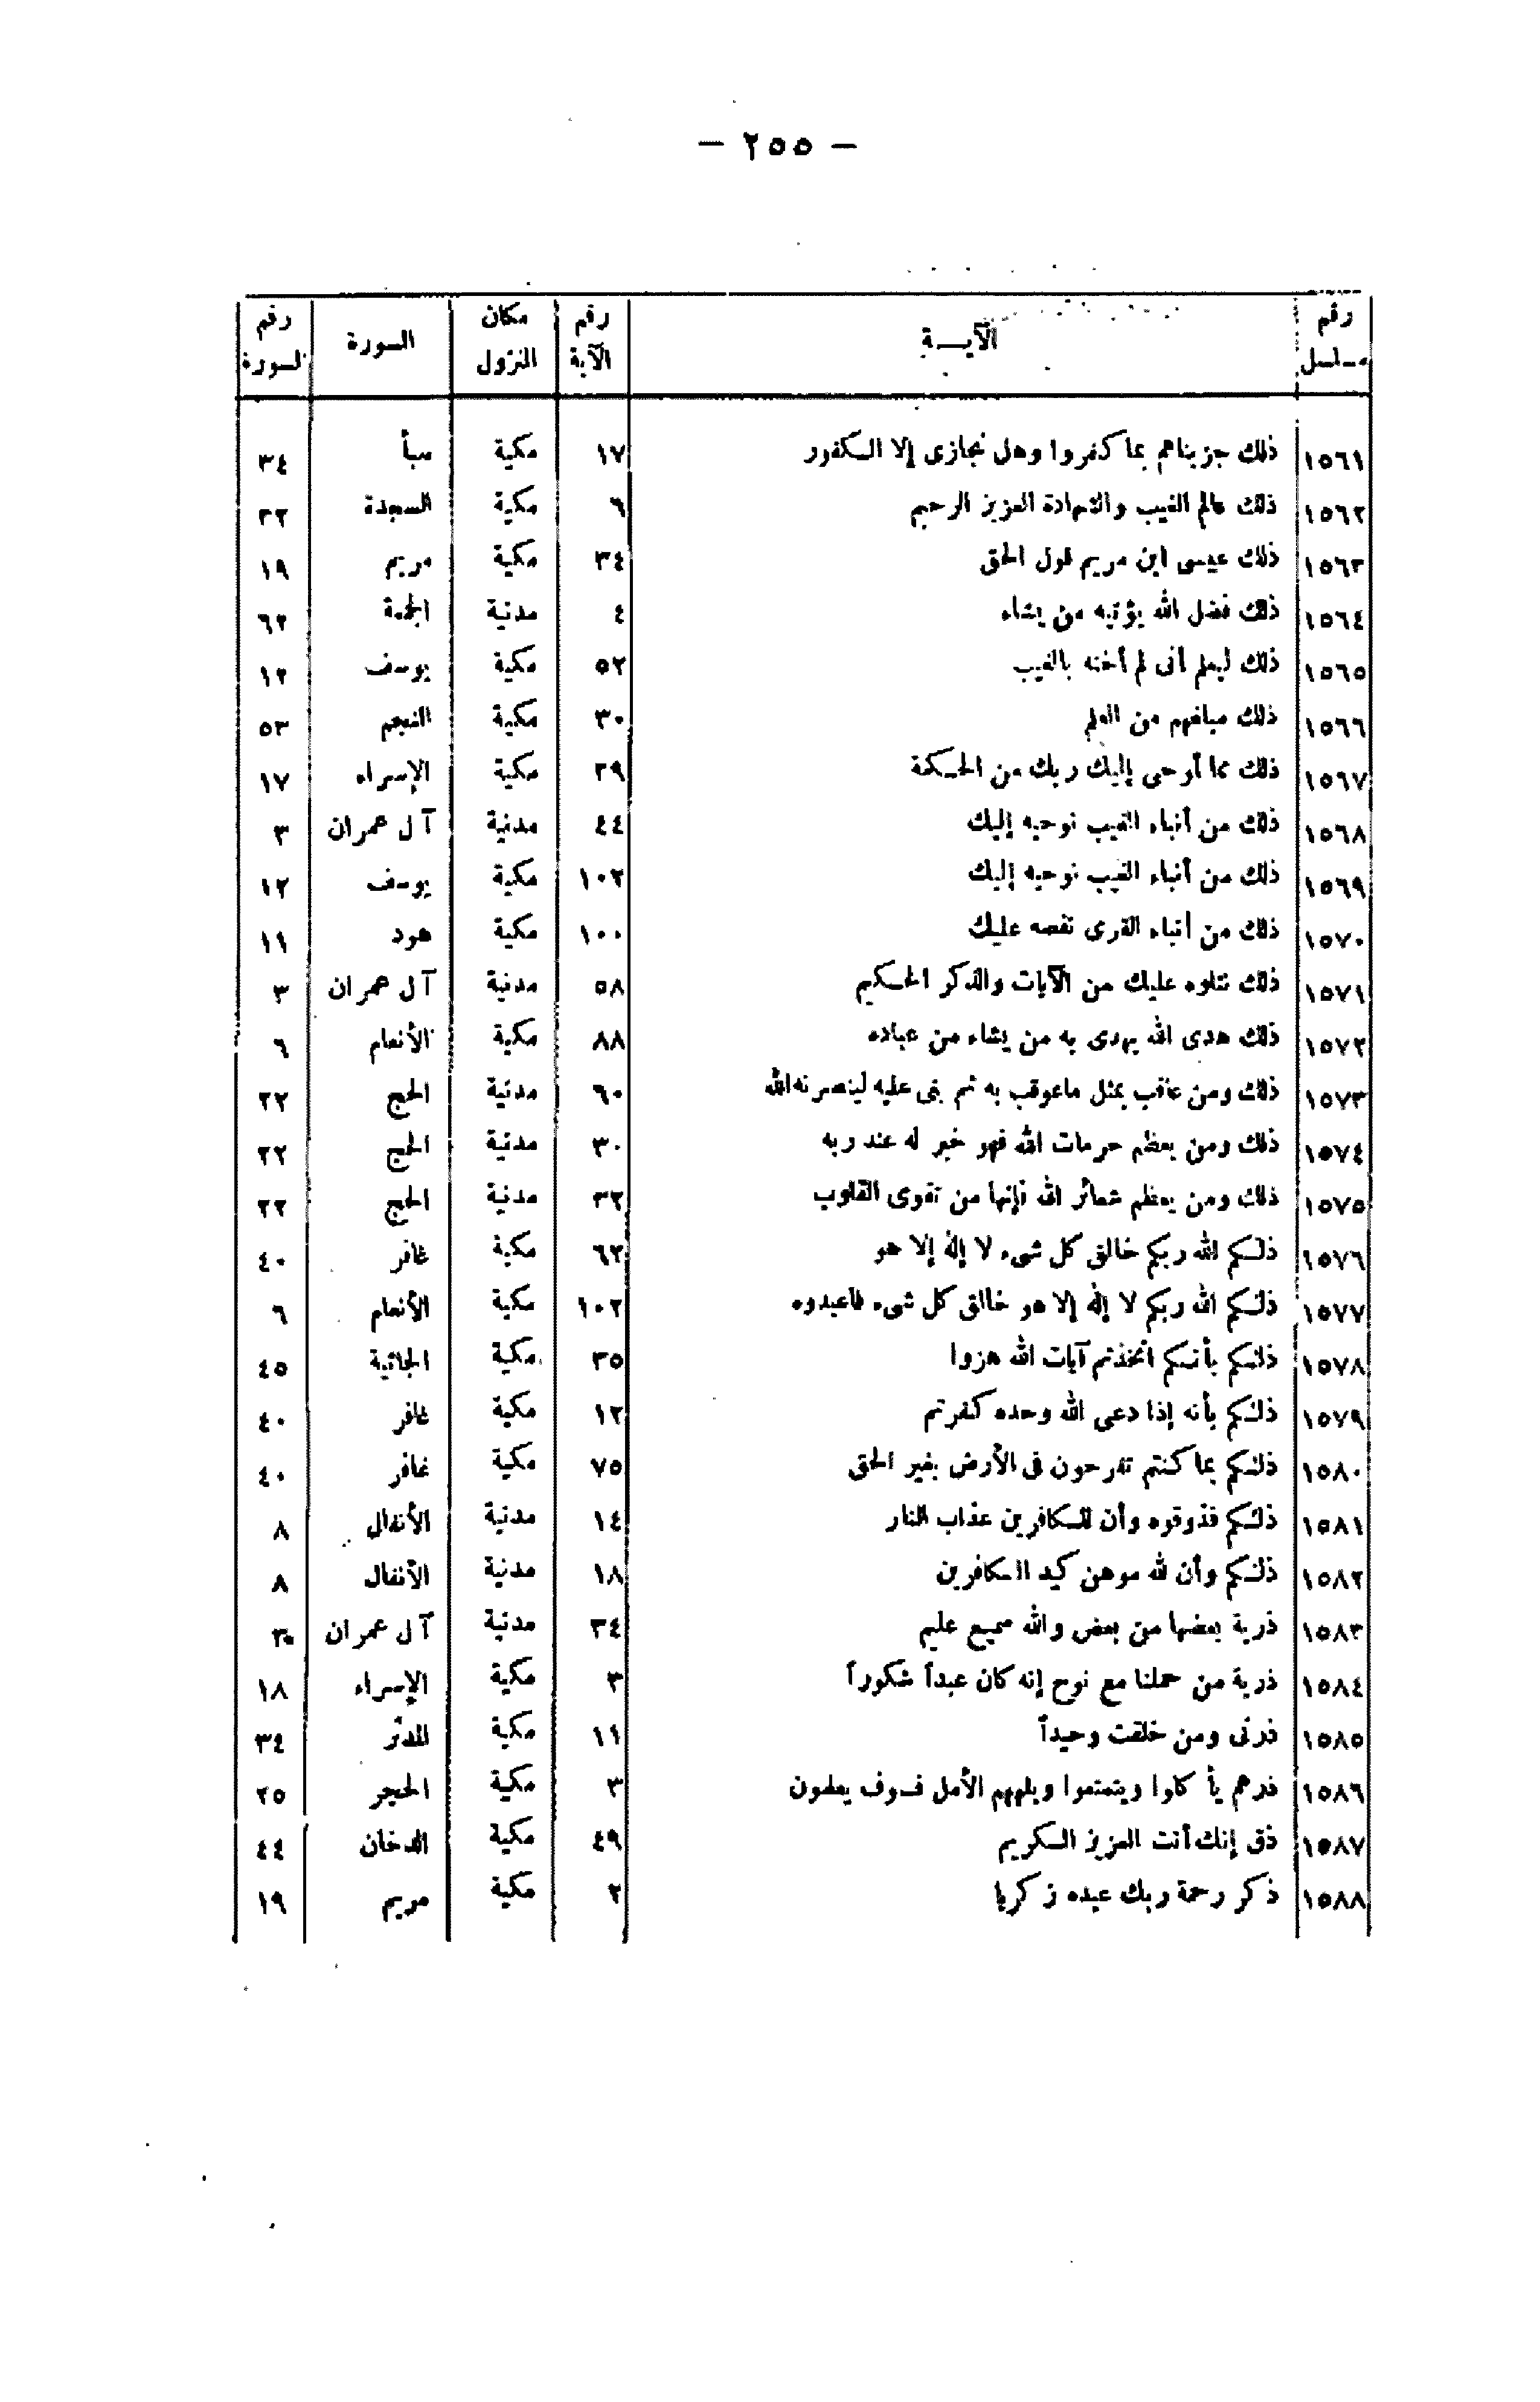 — ٢٥٥ —
رقم مسلسل | الآيــة | رقم الآية | مكان النزول | السورة | رقم السورة
١٥٦١ | ذلك جزيناهم بما كفروا وهل نجازى إلا الكفور | ١٧ | مكية | سبأ | ٣٤
١٥٦٢ | ذلك عالم الغيب والشهادة العزيز الرحيم | ٦ | مكية | السجدة | ٣٢
١٥٦٣ | ذلك عيسى ابن مريم قول الحق | ٣٤ | مكية | مريم | ١٩
١٥٦٤ | ذلك فضل الله يؤتيه من يشاء | ٤ | مدنية | الجمعة | ٦٢
١٥٦٥ | ذلك ليعلم أنى لم أخنه بالغيب | ٥٢ | مكية | يوسف | ١٢
١٥٦٦ | ذلك مبلغهم من العلم | ٣٠ | مكية | النجم | ٥٣
١٥٦٧ | ذلك مما أوحى إليك ربك من الحكمة | ٣٩ | مكية | الإسراء | ١٧
١٥٦٨ | ذلك من أنباء الغيب نوحيه إليك | ٤٤ | مدنية | آل عمران | ٣
١٥٦٩ | ذلك من أنباء الغيب نوحيه إليك | ١٠٢ | مكية | يوسف | ١٢
١٥٧٠ | ذلك من أنباء القرى نقصه عليك | ١٠٠ | مكية | هود | ١١
١٥٧١ | ذلك نتلوه عليك من الآيات والذكر الحكيم | ٥٨ | مدنية | آل عمران | ٣
١٥٧٢ | ذلك هدى الله يهدى به من يشاء من عباده | ٨٨ | مكية | الأنعام | ٦
١٥٧٣ | ذلك ومن عاقب بمثل ماعوقب به ثم بغى عليه لينصرنه الله | ٦٠ | مدنية | الحج | ٢٢
١٥٧٤ | ذلك ومن يعظم حرمات الله فهو خير له عند ربه | ٣٠ | مدنية | الحج | ٢٢
١٥٧٥ | ذلك ومن يعظم شعائر الله فإنها من تقوى القلوب | ٣٢ | مدنية | الحج | ٢٢
١٥٧٦ | ذلكم الله ربكم خالق كل شىء لا إله إلا هو | ٦٢ | مكية | غافر | ٤٠
١٥٧٧ | ذلكم الله ربكم لا إله إلا هو خالق كل شىء فاعبدوه | ١٠٢ | مكية | الأنعام | ٦
١٥٧٨ | ذلكم بأنكم اتخذتم آيات الله هزوا | ٣٥ | مكية | الجاثية | ٤٥
١٥٧٩ | ذلكم بأنه إذا دعى الله وحده كفرتم | ١٢ | مكية | غافر | ٤٠
١٥٨٠ | ذلكم بما كنتم تفرحون فى الأرض بغير الحق | ٧٥ | مكية | غافر | ٤٠
١٥٨١ | ذلكم فذوقوه وأن للكافرين عذاب النار | ١٤ | مدنية | الأنفال | ٨
١٥٨٢ | ذلكم وأن لله موهن كيد الكافرين | ١٨ | مدنية | الأنفال | ٨
١٥٨٣ | ذرية بعضها من بعض والله سميع عليم | ٣٤ | مدنية | آل عمران | ٣
١٥٨٤ | ذرية من حملنا مع نوح إنه كان عبداً شكوراً | ٣ | مكية | الإسراء | ١٨
١٥٨٥ | ذرنى ومن خلقت وحيداً | ١١ | مكية | المدثر | ٣٤
١٥٨٦ | ذرهم يأكلوا ويتمتعوا ويلههم الأمل فسوف يعلمون | ٣ | مكية | الحجر | ٢٥
١٥٨٧ | ذق إنك أنت العزيز الكريم | ٤٩ | مكية | الدخان | ٤٤
١٥٨٨ | ذكر رحمة ربك عبده زكريا | ٢ | مكية | مريم | ١٩